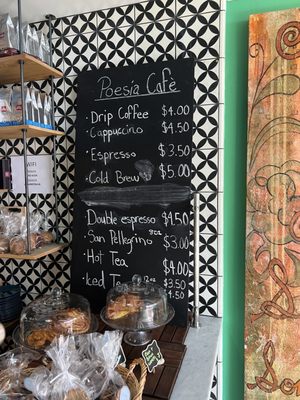 Poesía Cafè
Drip Coffee $4.00
Cappuccino $4.50
Espresso $3.50
Cold Brew $5.00
Double espresso $4.50
San Pellegrino 8oz $3.00
Hot Tea $4.00
$3.50
Iced Tea 12oz $4.50
WIFI